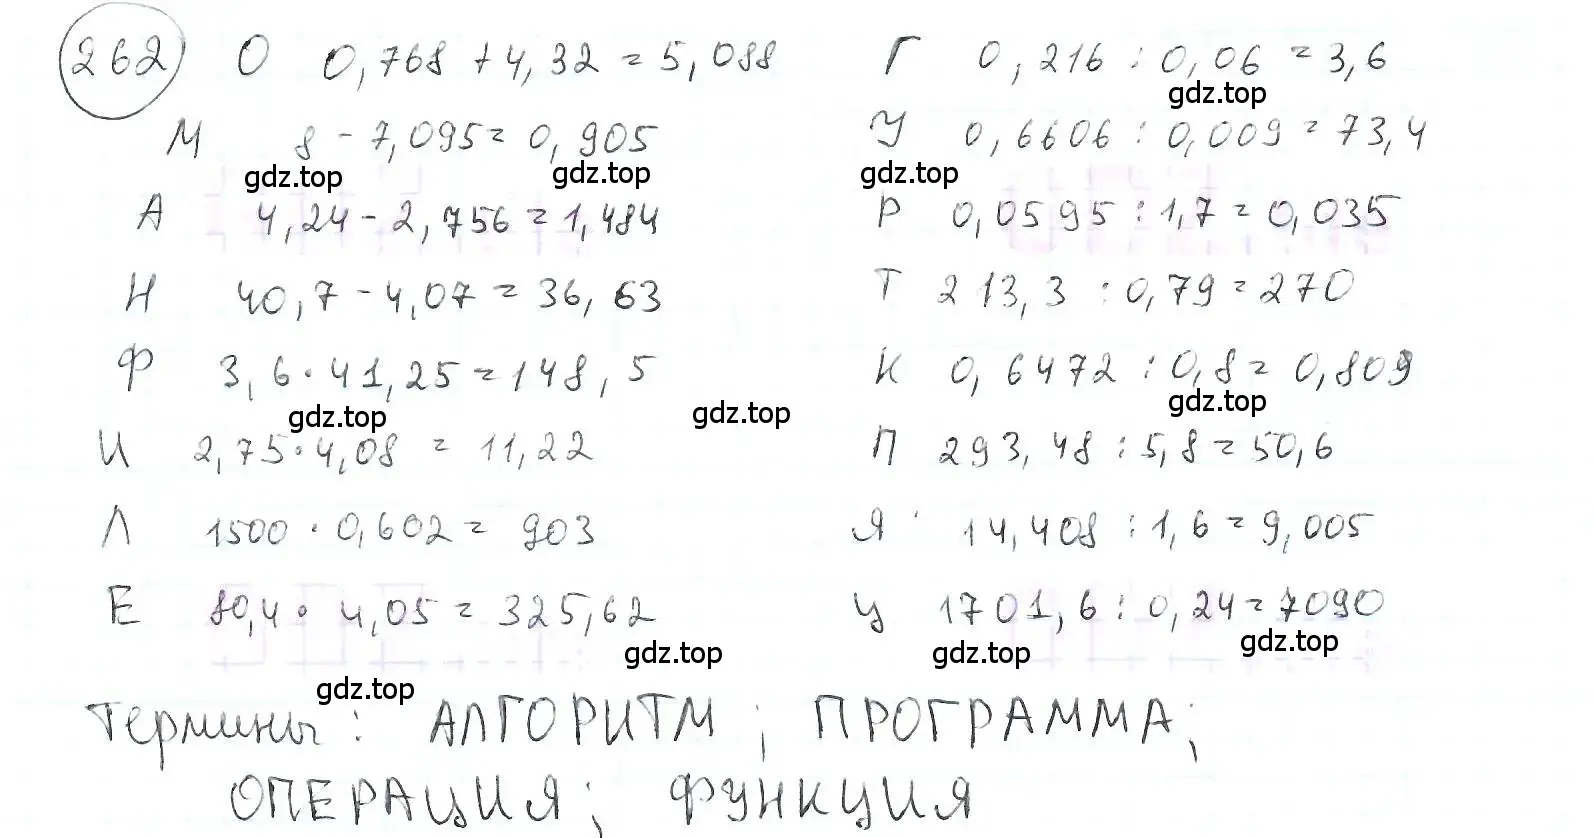 262 О 0,768 + 4,32 = 5,088 Г 0,216 : 0,06 = 3,6
gdz.top
М 8 - 7,095 = 0,905 У 0,6606 : 0,009 = 73,4
gdz.top gdz.top gdz.top
А 4,24 - 2,756 = 1,484 Р 0,0595 : 1,7 = 0,035
Н 40,7 - 4,07 = 36,63 Т 213,3 : 0,79 = 270
Ф 3,6 · 41,25 = 148,5 К 0,6472 : 0,8 = 0,809
gdz.top gdz.top gdz.top
И 2,75 · 4,08 = 11,22 П 293,48 : 5,8 = 50,6
Л 1500 · 0,602 = 903 Я 14,408 : 1,6 = 9,005
Е 80,4 · 4,05 = 325,62 Ц 1701,6 : 0,24 = 7090
gdz.top gdz.top gdz.top
gdz.top
Термины: АЛГОРИТМ; ПРОГРАММА;
ОПЕРАЦИЯ; ФУНКЦИЯ